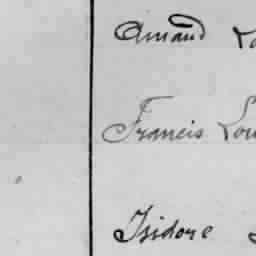 Amand
Francis Lou
Isidore